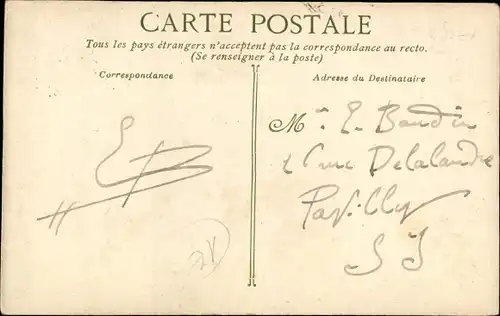 CARTE POSTALE
Tous les pays étrangers n'acceptent pas la correspondance au recto.
(Se renseigner à la poste)
Correspondance
Adresse du Destinataire
EB
M. E. Baudin
rue Delalandre
Pavilly
S I